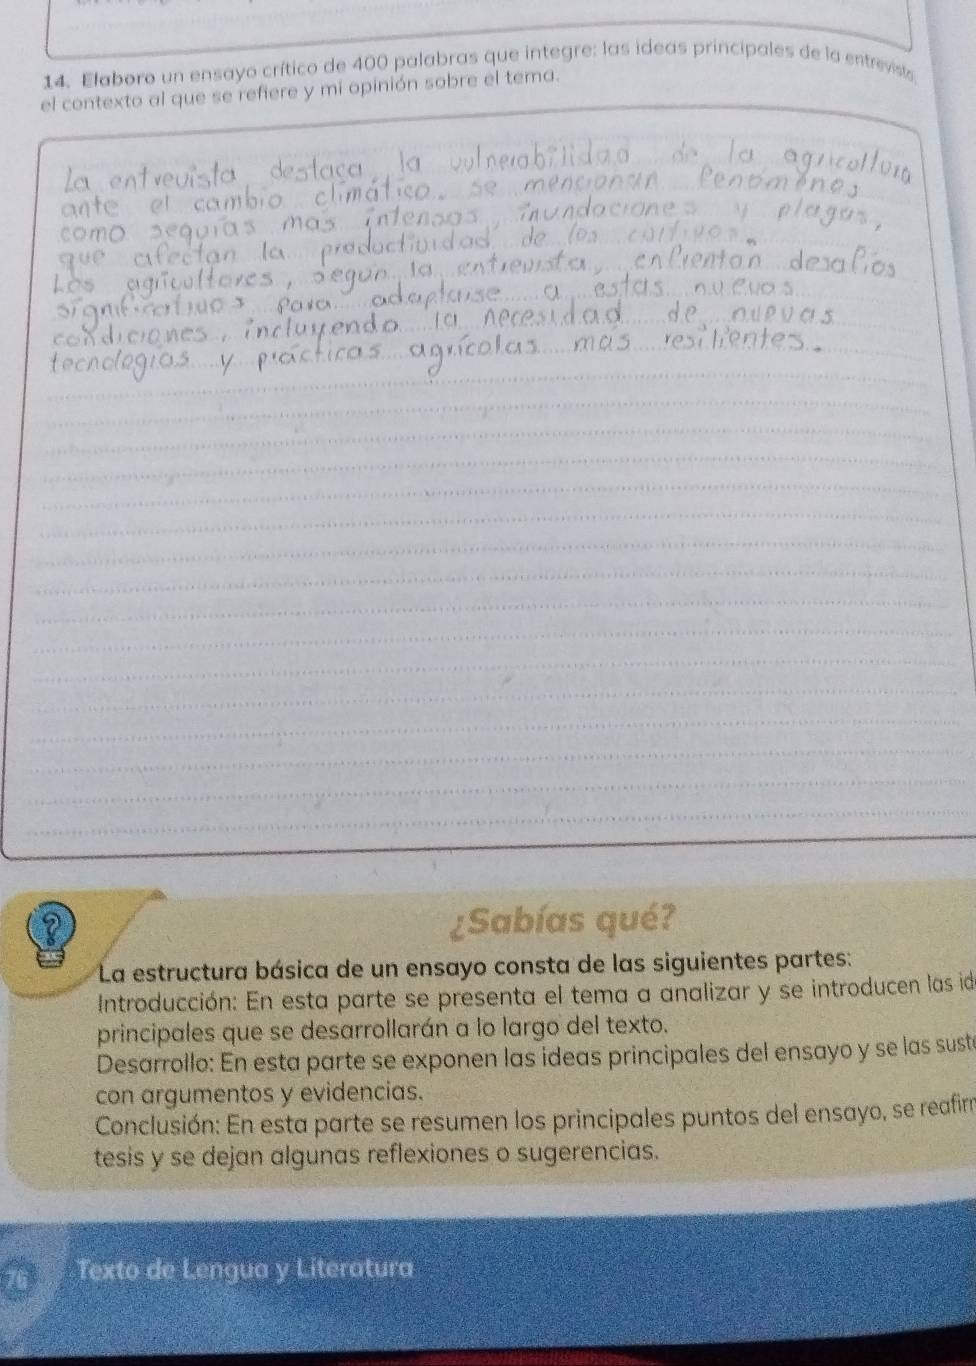 14. Elaboro un ensayo crítico de 400 palabras que integre: las ideas principales de la entrevista,
el contexto al que se refiere y mi opinión sobre el tema.
La entrevista destaca, la vulnerabilidad de la agricultura
ante el cambio climático. se mencionan fenómenes
como sequias mas intensas, inundaciones y plagas,
que afectan la productividad de los cultivos.
Los agricultores, según la entrevista, enfrentan desafíos
significativos para adaptarse a estas nuevas
condiciones, incluyendo la necesidad de nuevas
tecnologías y prácticas agrícolas mas resilientes.
¿Sabías qué?
La estructura básica de un ensayo consta de las siguientes partes:
Introducción: En esta parte se presenta el tema a analizar y se introducen las id
principales que se desarrollarán a lo largo del texto.
Desarrollo: En esta parte se exponen las ideas principales del ensayo y se las sust
con argumentos y evidencias.
Conclusión: En esta parte se resumen los principales puntos del ensayo, se reafir
tesis y se dejan algunas reflexiones o sugerencias.
76 Texto de Lengua y Literatura